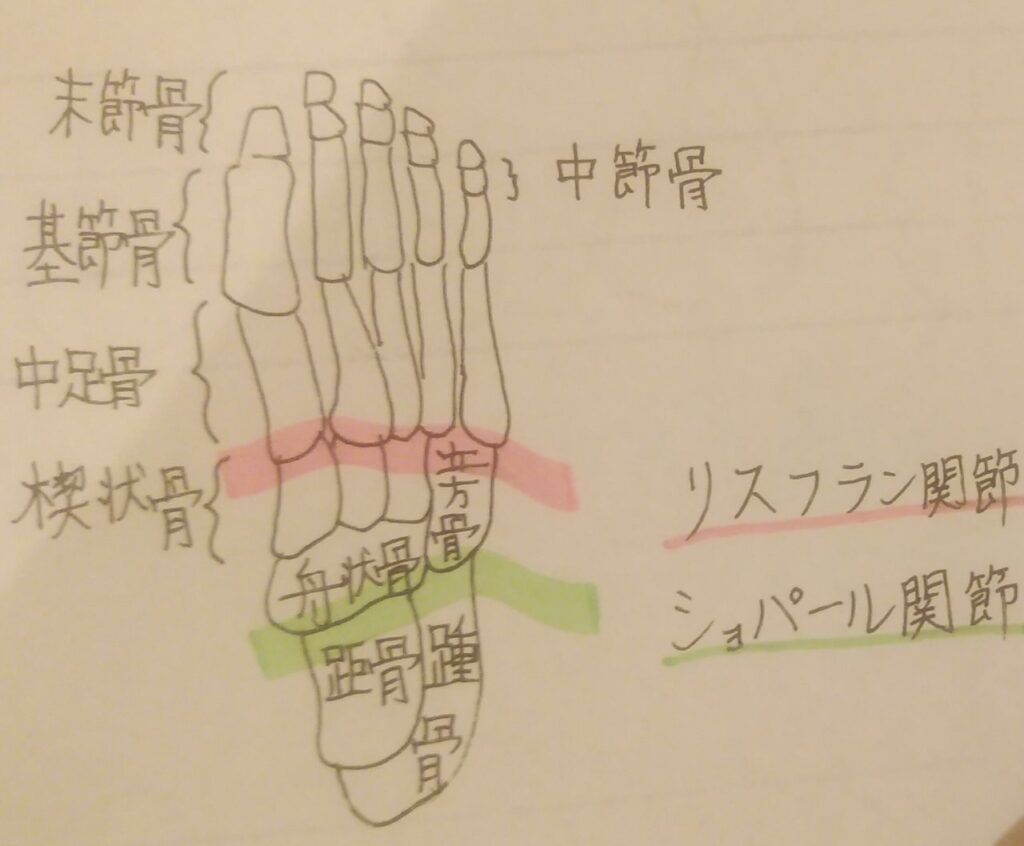 末節骨
中節骨
基節骨
中足骨
楔状骨
立方骨
舟状骨
距骨
踵骨
リスフラン関節
ショパール関節